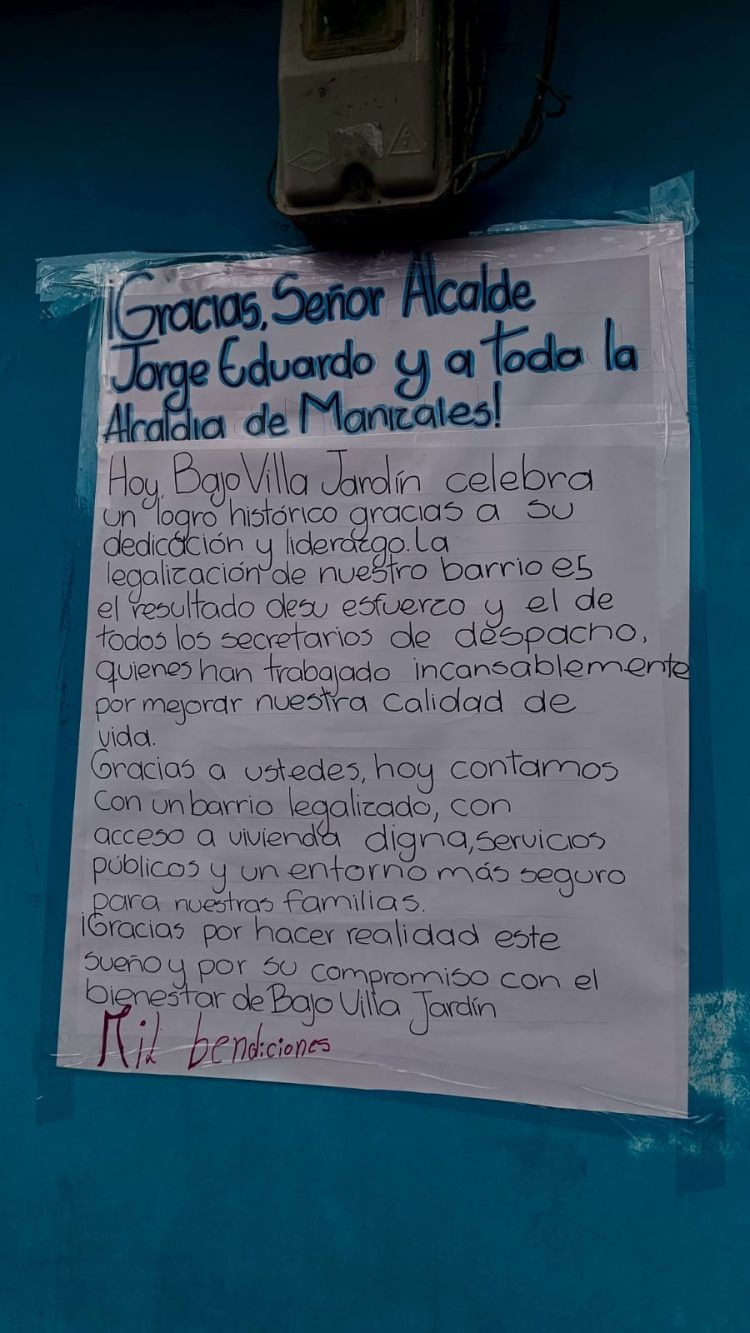 ¡Gracias, Señor Alcalde
Jorge Eduardo y a toda la
Alcaldia de Manizales!
Hoy, Bajo Villa Jardín celebra
un logro histórico gracias a su
dedicación y liderazgo. La
legalización de nuestro barrio es
el resultado desu esfuerzo y el de
todos los secretarios de despacho,
quienes han trabajado incansablemente
por mejorar nuestra calidad de
vida.
Gracias a ustedes, hoy contamos
con un barrio legalizado, con
acceso a vivienda digna, servicios
públicos y un entorno más seguro
para nuestras familias.
¡Gracias por hacer realidad este
sueño y por su compromiso con el
bienestar de Bajo Villa Jardín
Mil bendiciones